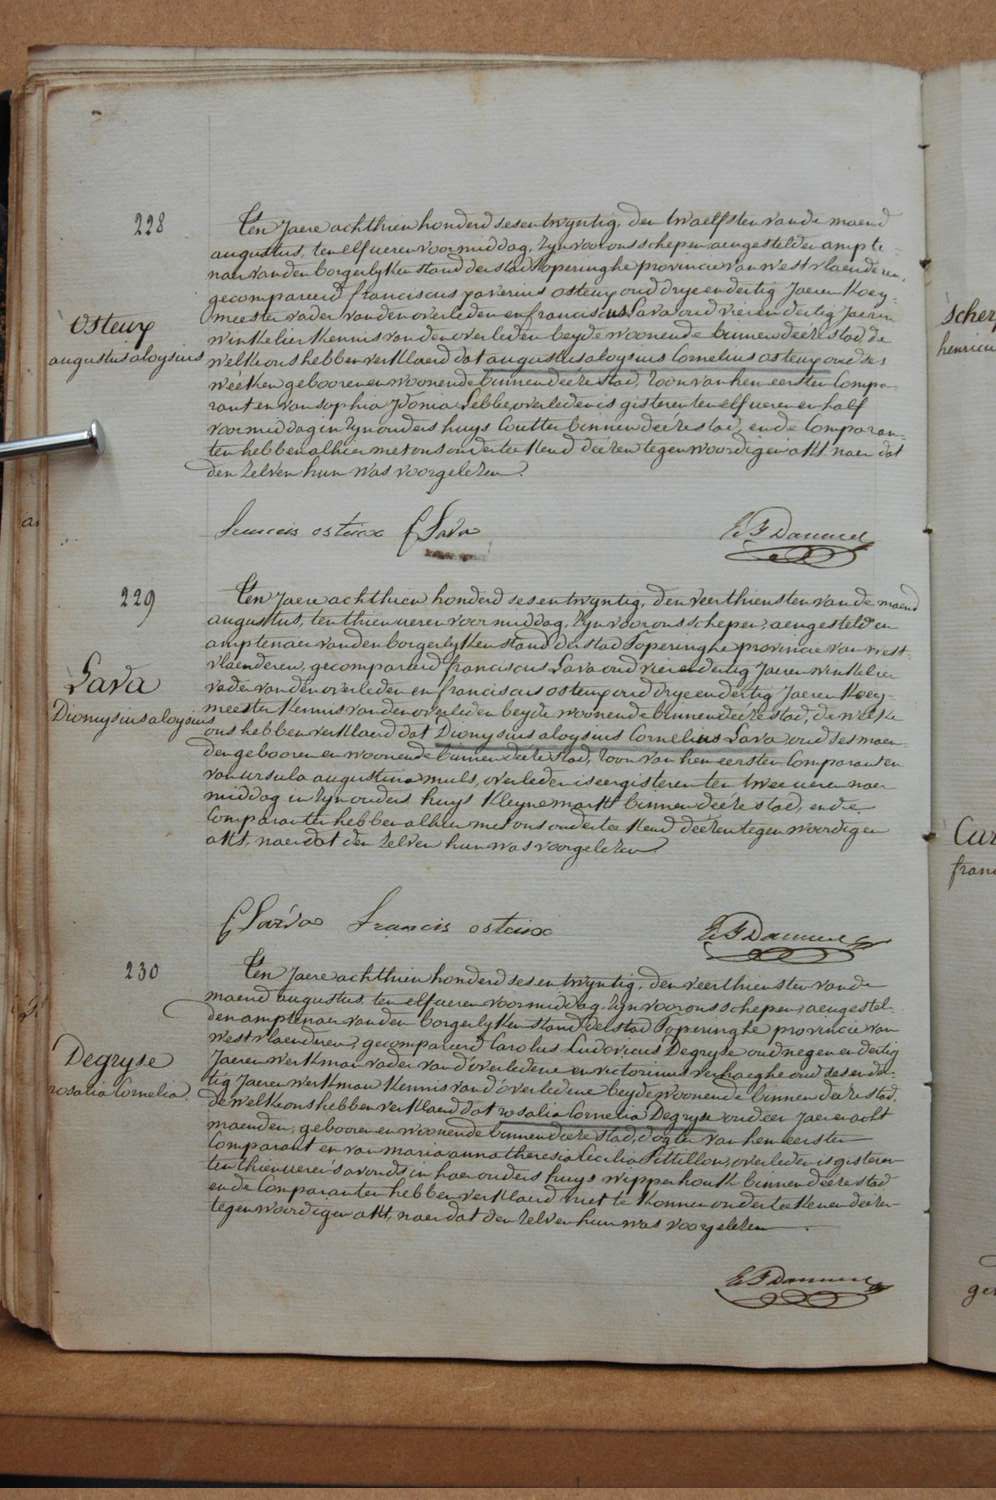 228
Osteux
augustus aloysius
Ten Jaere achthien honderd ses en twyntig, den twaelfsten van de maend
augustus, ten elf ueren voormiddag, zyn voor ons schepen aengestelden ampte-
naer van den borgerlyken stand der stad Poperinghe provincie van westvlaenderen,
gecompareerd franciscus xaverius osteux oud drye en dertig Jaeren Koey-
meester vader van den overleden en franciscus Lava oud vier en dertig Jaeren
winkelier Kennis van den overleden beyde woonende binnen deéze stad, de
welke ons hebben verklaerd dat augustus aloysius Cornelius osteux oud ses
wéeken gebooren en woonende binnen deéze stad, zoon van hen eersten Compa-
rant en van sophia Idonia Lebbe, overleden is gisteren ten elf ueren en half
voormiddag in zyn ouders huys Coutter binnen deéze stad, ende Comparan-
ten hebben alhier met ons onderteekend deézen tegenwoordigen akt naer dat
den zelven hun was voorgelezen.
francis osteux f Lava
229
Lava
Dionysius aloysius
Ten Jaere achthien honderd ses en twyntig, den veerthiensten van de maend
augustus, ten thien ueren voormiddag, zyn voor ons schepen, aengestelden
amptenaer van den borgerlyken stand der stad Poperinghe provincie van west-
vlaenderen, gecompareerd franciscus Lava oud vier en dertig Jaeren winkelier
vader van den overleden en franciscus osteux oud drye en dertig Jaeren Koey-
meester Kennis van den overleden beyde woonende binnen deéze stad, de welke
ons hebben verklaerd dat Dionysius aloysius Cornelius Lava oud ses maen-
den gebooren en woonende binnen deéze stad, zoon van hen eersten Comparant en
van ursula augustina muls, overleden is eergisteren ten twee ueren naer
middag in zyn ouders huys Kleyne markt binnen deéze stad, ende
Comparanten hebben alhier met ons onderteekend deézen tegenwoordigen
akt, naer dat den zelven hun was voorgelezen
f Lava francis osteux
230
Degryse
rosalia Cornelia
Ten Jaere achthien honderd ses en twyntig, den veerthiensten van de
maend augustus, ten elf ueren voormiddag, zyn voor ons schepen, aengestel-
den amptenaer van den borgerlyken stand der stad Poperinghe provincie van
westvlaenderen, gecompareerd Carolus Ludovicus Degryse oud negen en dertig
Jaeren werkman vader van d'overledene en victorinus verhaeghe oud ses en der-
tig Jaeren werkman Kennis van d'overledene beyde woonende binnen deéze stad,
de welke ons hebben verklaerd dat rosalia Cornelia Degryse oud een Jaer en acht
maenden, gebooren en woonende binnen deéze stad, dogter van hen eersten
Comparant en van maria anna theresia Cecilia Pittillon, overleden is gisteren
ten thien ueren s'avonds in haer ouders huys wippenhoek binnen deéze stad
ende Comparanten hebben verklaerd niet te Konnen onderteekenen deézen
tegenwoordigen akt, naer dat den zelven hun was voorgelezen